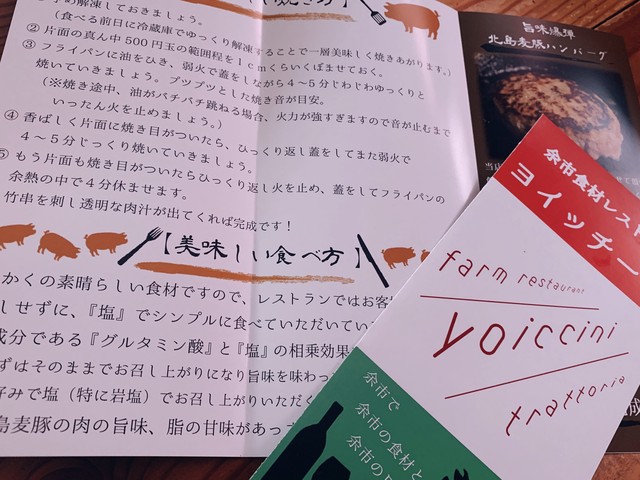 解凍しておきましょう。
(食べる前日に冷蔵庫でゆっくり解凍することで一層美味しく焼きあがります。)
② 片面の真ん中500円玉の範囲程を1cmくらいくぼませておく。
③ フライパンに油をひき、弱火で蓋をしながら4~5分じわじわゆっくりと
焼いていきましょう。ブツブツとした焼き音が目安。
(※焼き途中、油がパチパチ跳ねる場合、火力が強すぎますので音が止むまで
いったん火を止めましょう。)
④ 香ばしく片面に焼き目がついたら、ひっくり返し蓋をしてまた弱火で
4~5分じっくり焼いていきましょう。
⑤ もう片面も焼き目がついたらひっくり返し火を止め、蓋をしてフライパンの
余熱の中で4分休ませます。
竹串を刺し透明な肉汁が出てくれば完成です!
【美味しい食べ方】
かくの素晴らしい食材ですので、レストランではお客
しせずに、『塩』でシンプルに食べていただいてい
成分である『グルタミン酸』と『塩』の相乗効果
ずはそのままでお召し上がりになり旨味を味わっ
好みで塩(特に岩塩)でお召し上がりいただく
島麦豚の肉の旨味、脂の甘味があっさ
旨味爆弾
北島麦豚ハンバーグ
余市食材レスト
ヨイッチー
farm restaurant
yoiccini
trattoria
余市で
余市の食材と
余市の